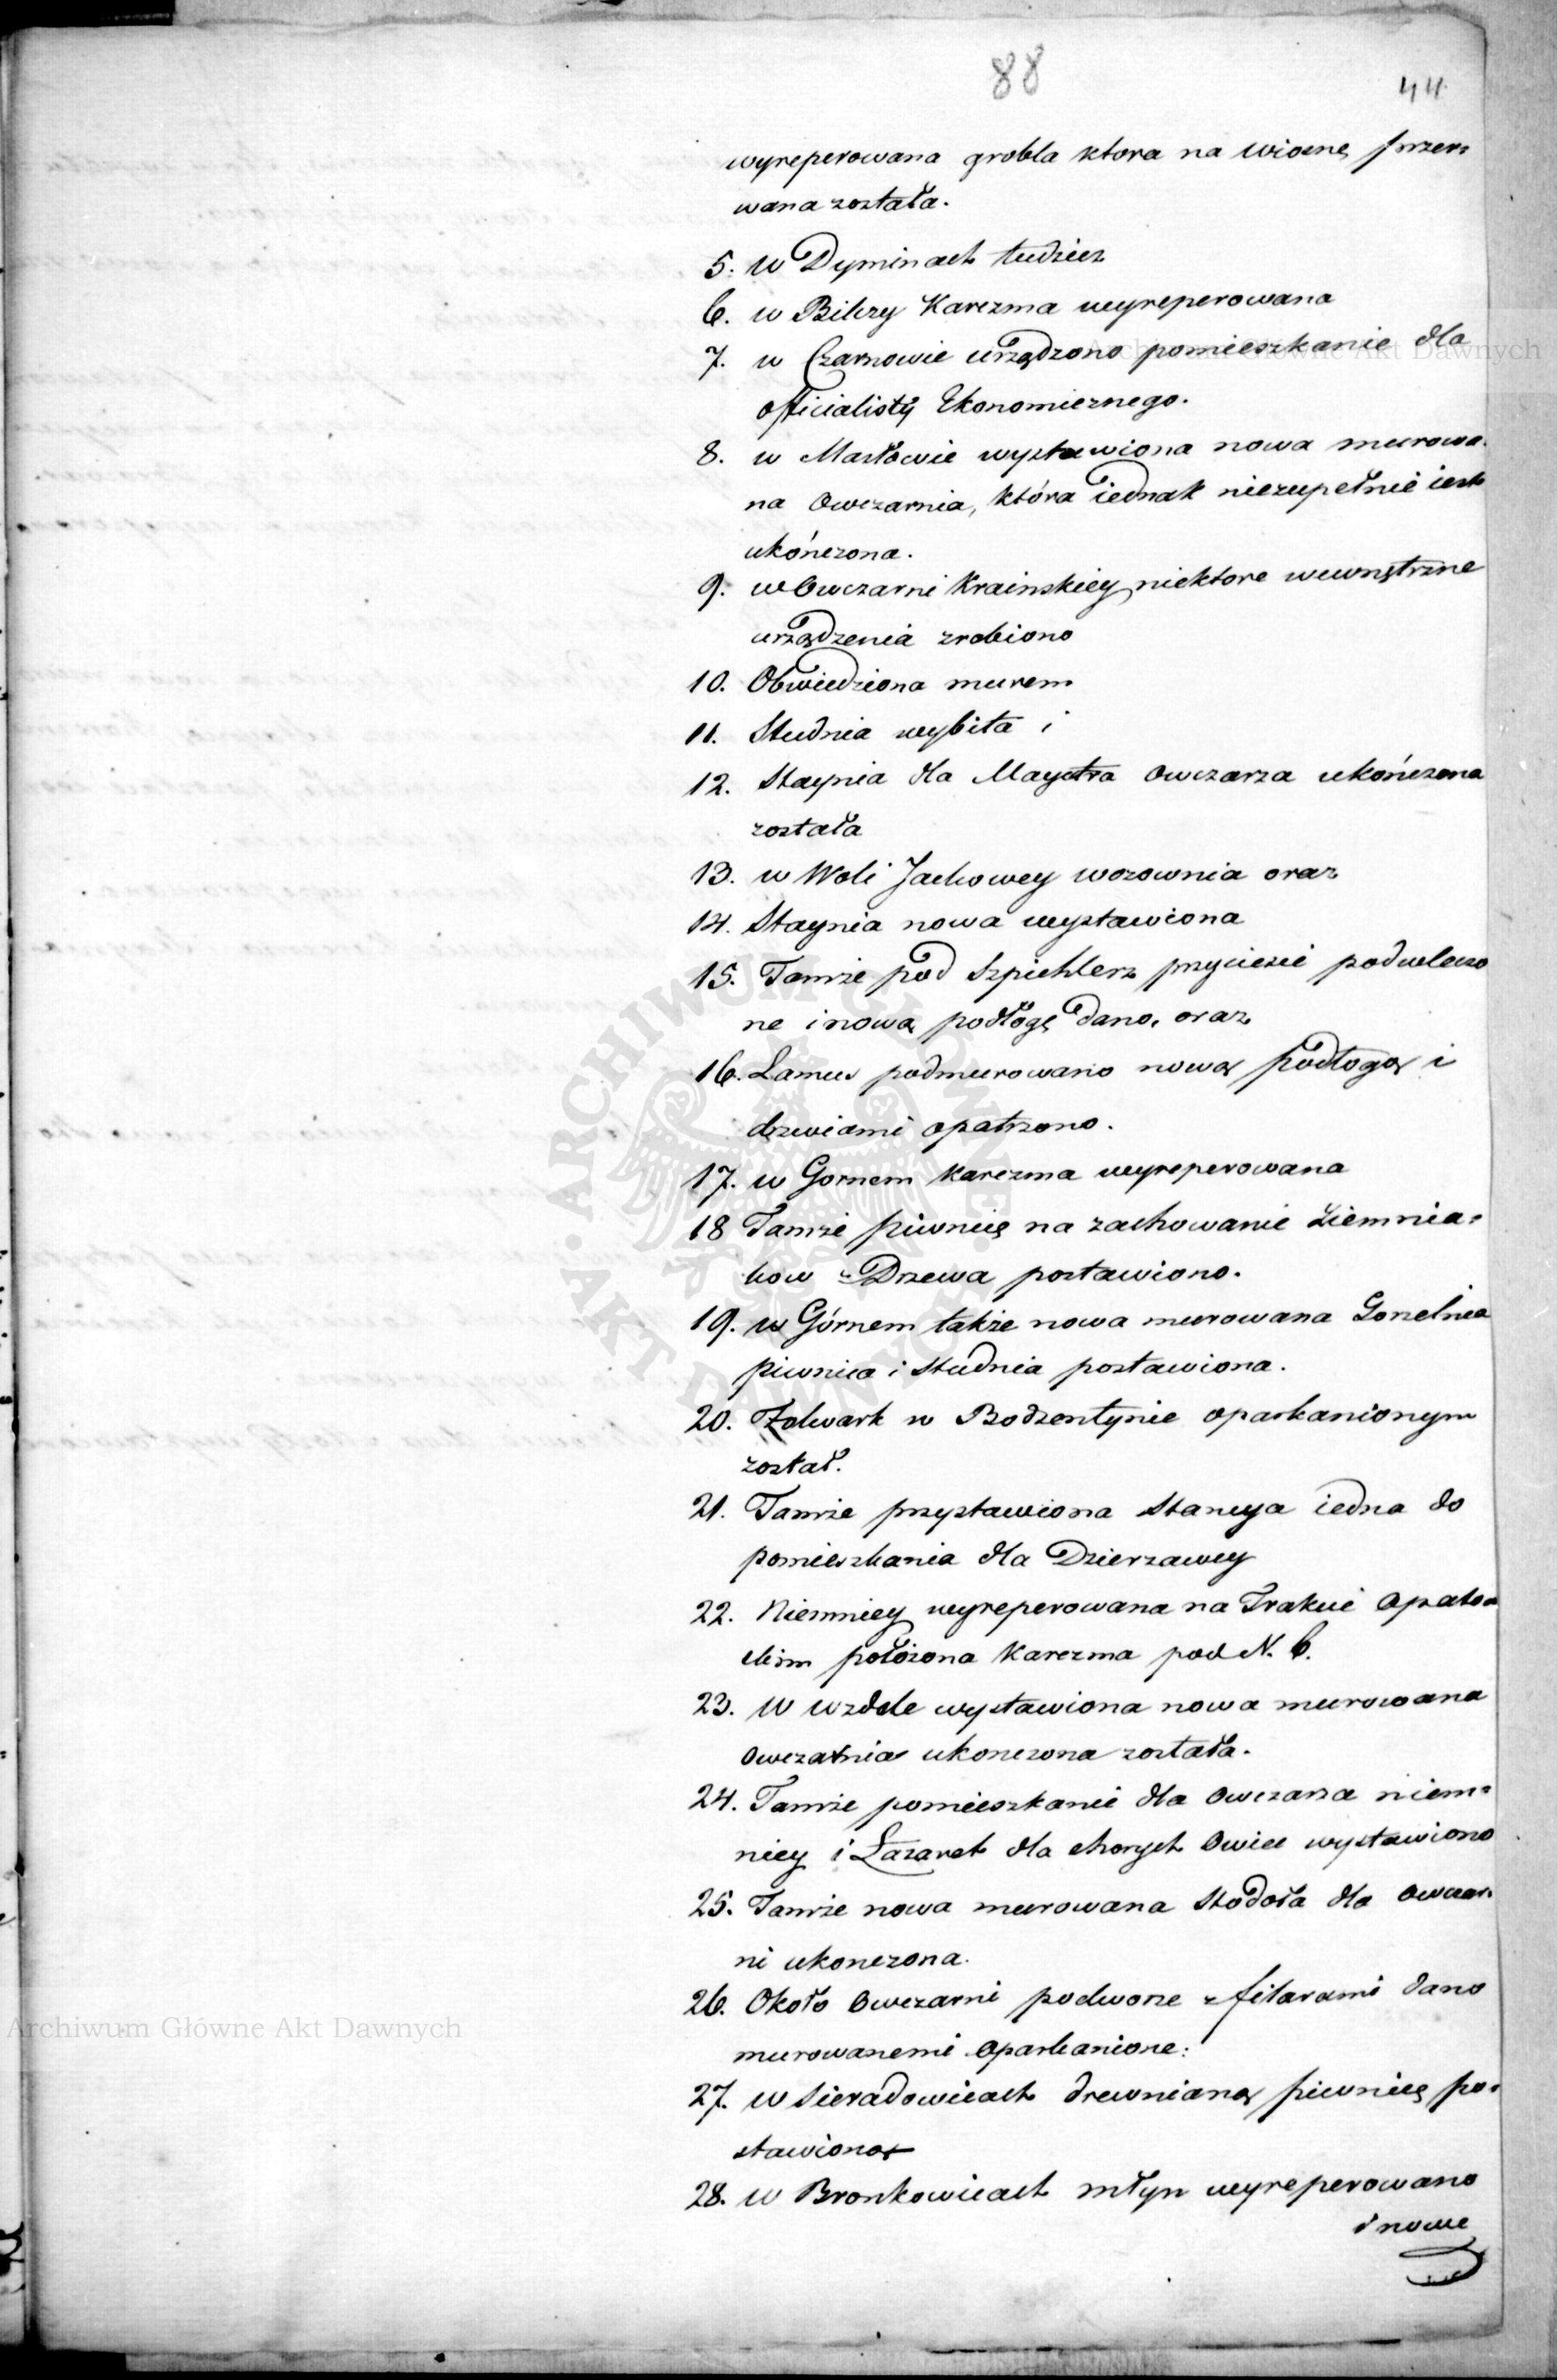 88
44
wyreperowana grobla ktora na wiosnę przer=
wana została.
5. w Dyminach tudzież
6. w Bilczy Karczma wyreperowana
7. w Czarnowie urządzono pomieszkanie dla
officialisty Ekonomicznego.
8. w Masłowie wystawiona nowa murowa=
na Owczarnia, która iednak niezupełnie iest
ukończona.
9. w Owczarni Krainskiey niektore wewnętrzne
urządzenia zrobiono
10. Obwiedziona murem
11. Studnia wybita i
12. Staynia dla Maystra Owczarza ukończona
została
13. w Woli Jachowey wozownia oraz
14. Staynia nowa wystawiona
15. Tamże pod Szpichlerz przyciesie podwleczo
ne i nową podłogę dano, oraz
16. Lamus podmurowano nową podłogą i
drzwiami opatrzono.
17. w Gornem karczma wyreperowana
18 Tamże piwnicę na zachowanie ziemnia=
kow z Drzewa postawiono.
19. w Górnem także nowa murowana Gorzelnia
piwnica i studnia postawiona.
20. Folwark w Bodzentynie oparkanionym
został.
21. Tamże przystawiona Stancya iedna do
pomieszkania dla Dzierzawcy
22. Niemniey wyreperowana na Trakcie Opatow
skim położona Karczma pod N. 6.
23. W Wzdole wystawiona nowa murowana
Owczarnia ukonczona została.
24. Tamże pomieszkanie dla Owczarza niem=
niey i Lazaret dla chorych Owiec wystawiono
25. Tamże nowa murowana Stodoła dla Owczar=
ni ukonczona.
26. Około Owczarni podworze z filarami dano
murowanemi oparkanione:
27. w Sieradowicach drewnianą piwnicę po=
stawiono
28. w Bronkowicach młyn wyreperowano
i nowe
Archiwum Główne Akt Dawnych
Archiwum Główne Akt Dawnych
ARCHIWUM GŁÓWNE · AKT DAWNYCH ·